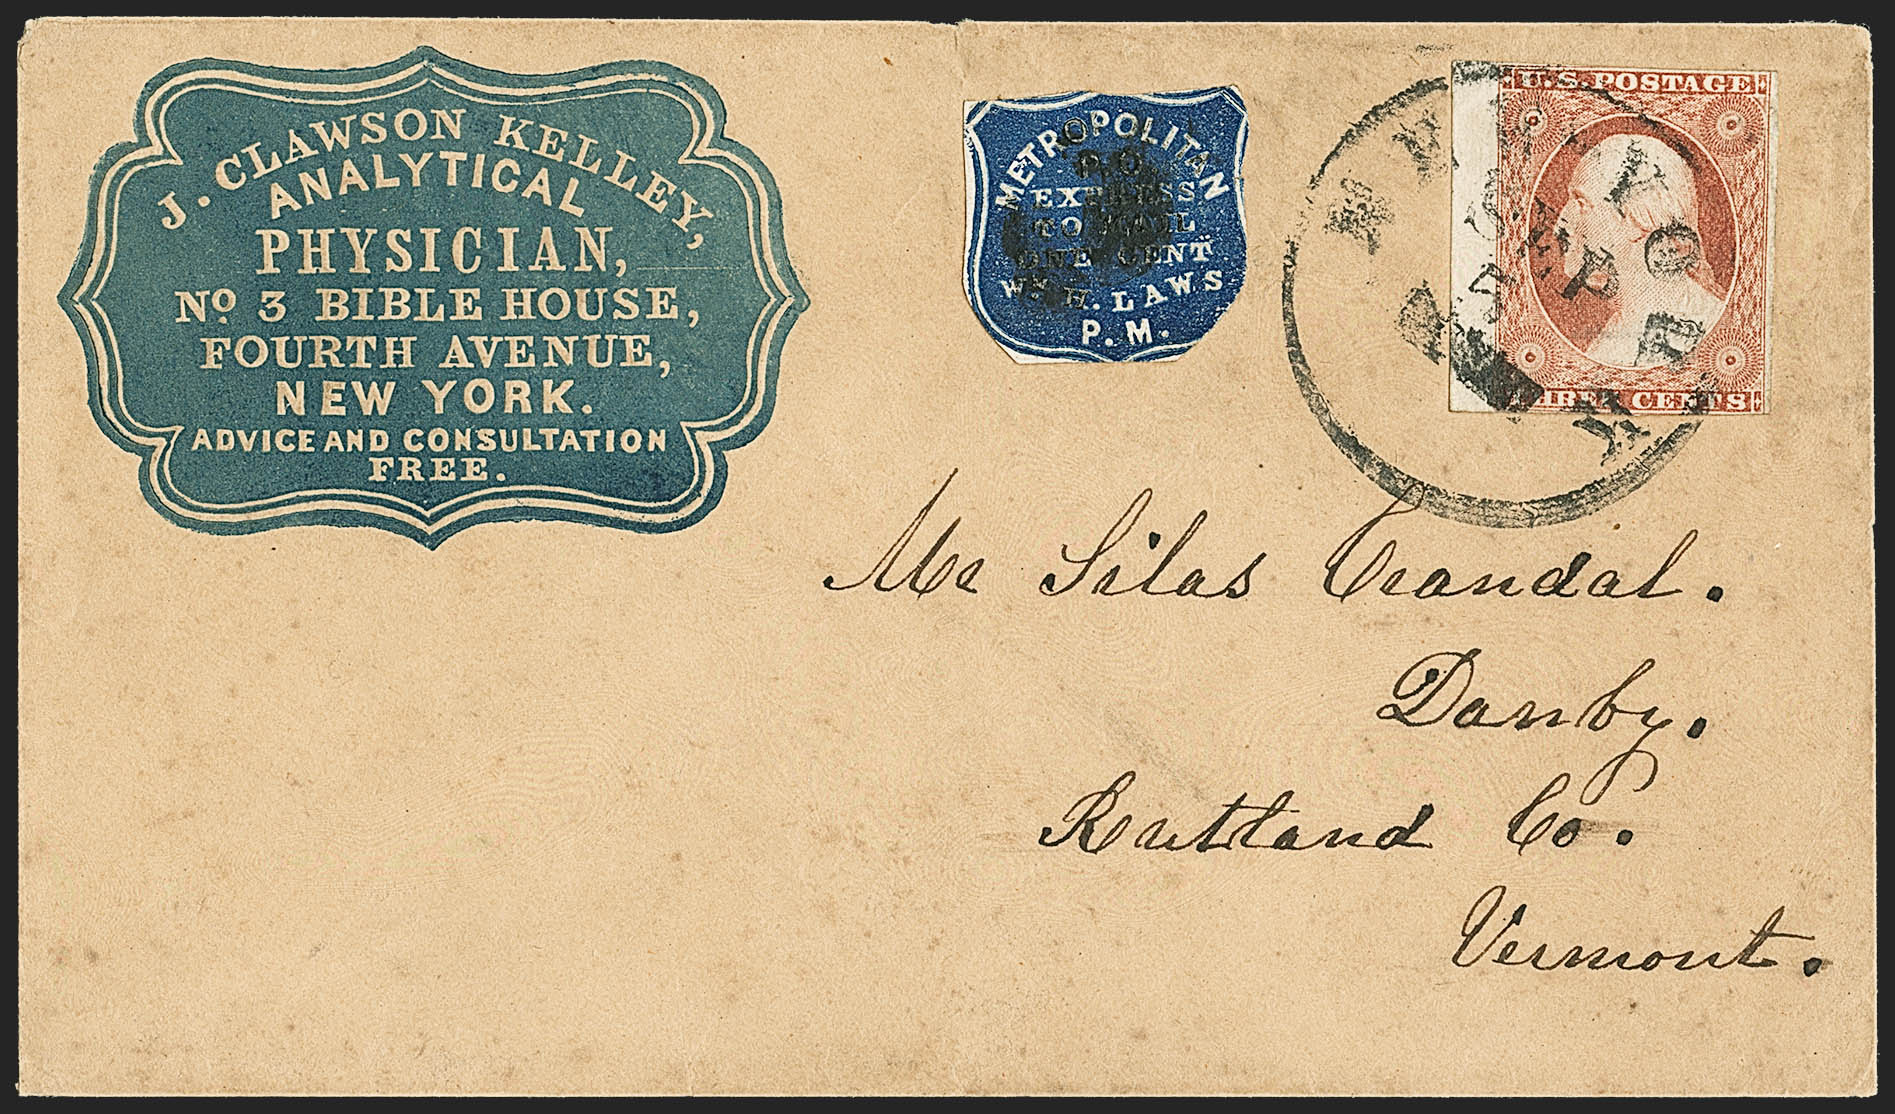 J. CLAWSON KELLEY,
ANALYTICAL
PHYSICIAN,
No. 3 BIBLE HOUSE,
FOURTH AVENUE,
NEW YORK.
ADVICE AND CONSULTATION
FREE.
METROPOLITAN
P.O.
EXPRESS
TO MAIL
ONE CENT
WM. H. LAWS
P.M.
U.S. POSTAGE
THREE CENTS
NEW YORK
SEP
Mr Silas Crandal.
Danby.
Rutland Co.
Vermont.